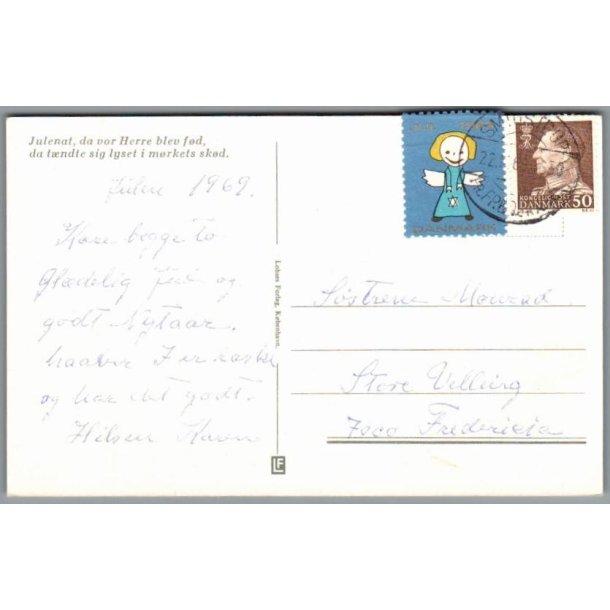 Julenat, da vor Herre blev fød,
da tændte sig lyset i mørkets skød.
Julen 1969.
Kære begge to
Glædelig Jul og
godt Nytaar.
haaber I er raske
og har det godt.
Hilsen Karen
Lohses Forlag, København.
LF
DANMARK
22.
KONGELIG POST
DANMARK 50
Søstrene Monrad
Store Velling
7000 Fredericia